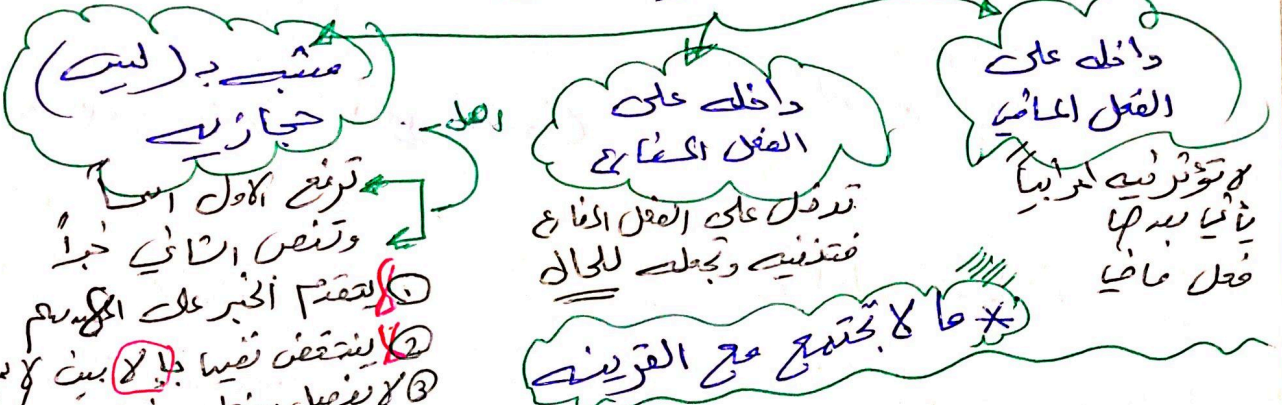 داخله على
الفعل الماضي
لا تؤثر فيه اعرابياً
يأتي بعدها
فعل ماضيا
داخله على
الفعل المضارع
تدخل على الفعل المضارع
فتنفيه وتجعله للحال
* ما لا تجتمع مع القرينه
مشبه بـ (ليس)
حجازيه
ترفع الاول اسماً
وتنصب الثاني خبراً
① لا يتقدم الخبر على
② لا ينتقض نفيها بـ إلا
③ لا يفصل